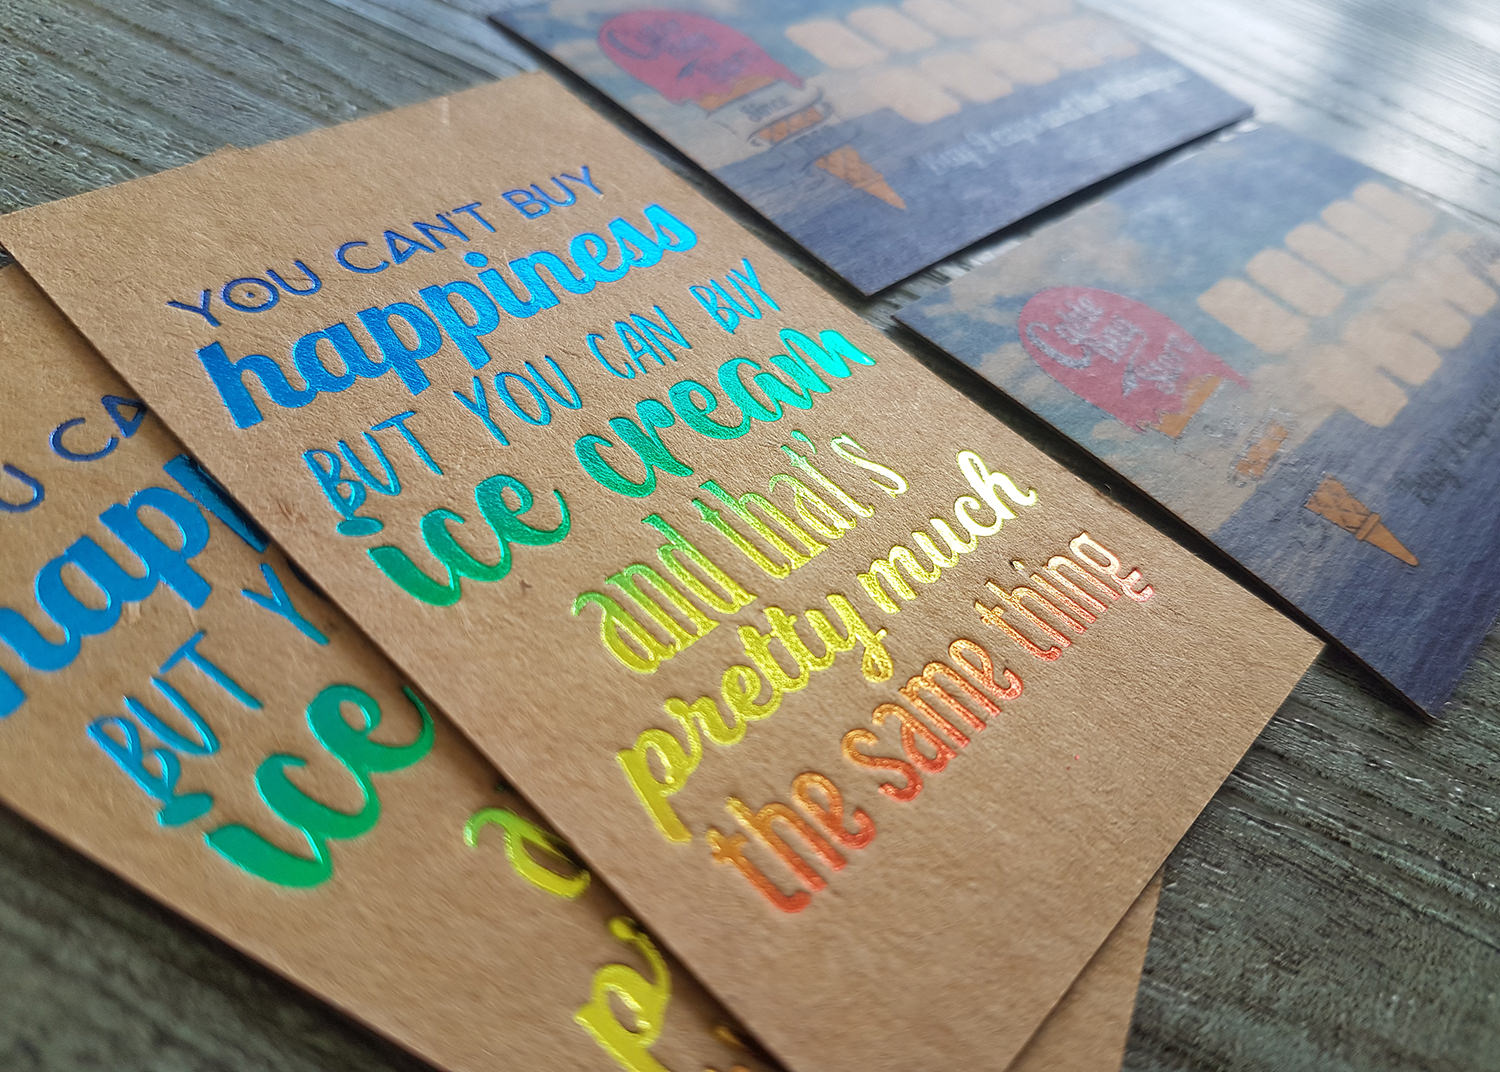 YOU CAN'T BUY
happiness
BUT YOU CAN BUY
ice cream
and that's
pretty much
the same thing
U CA
happ
BUT Y
ice
a
p